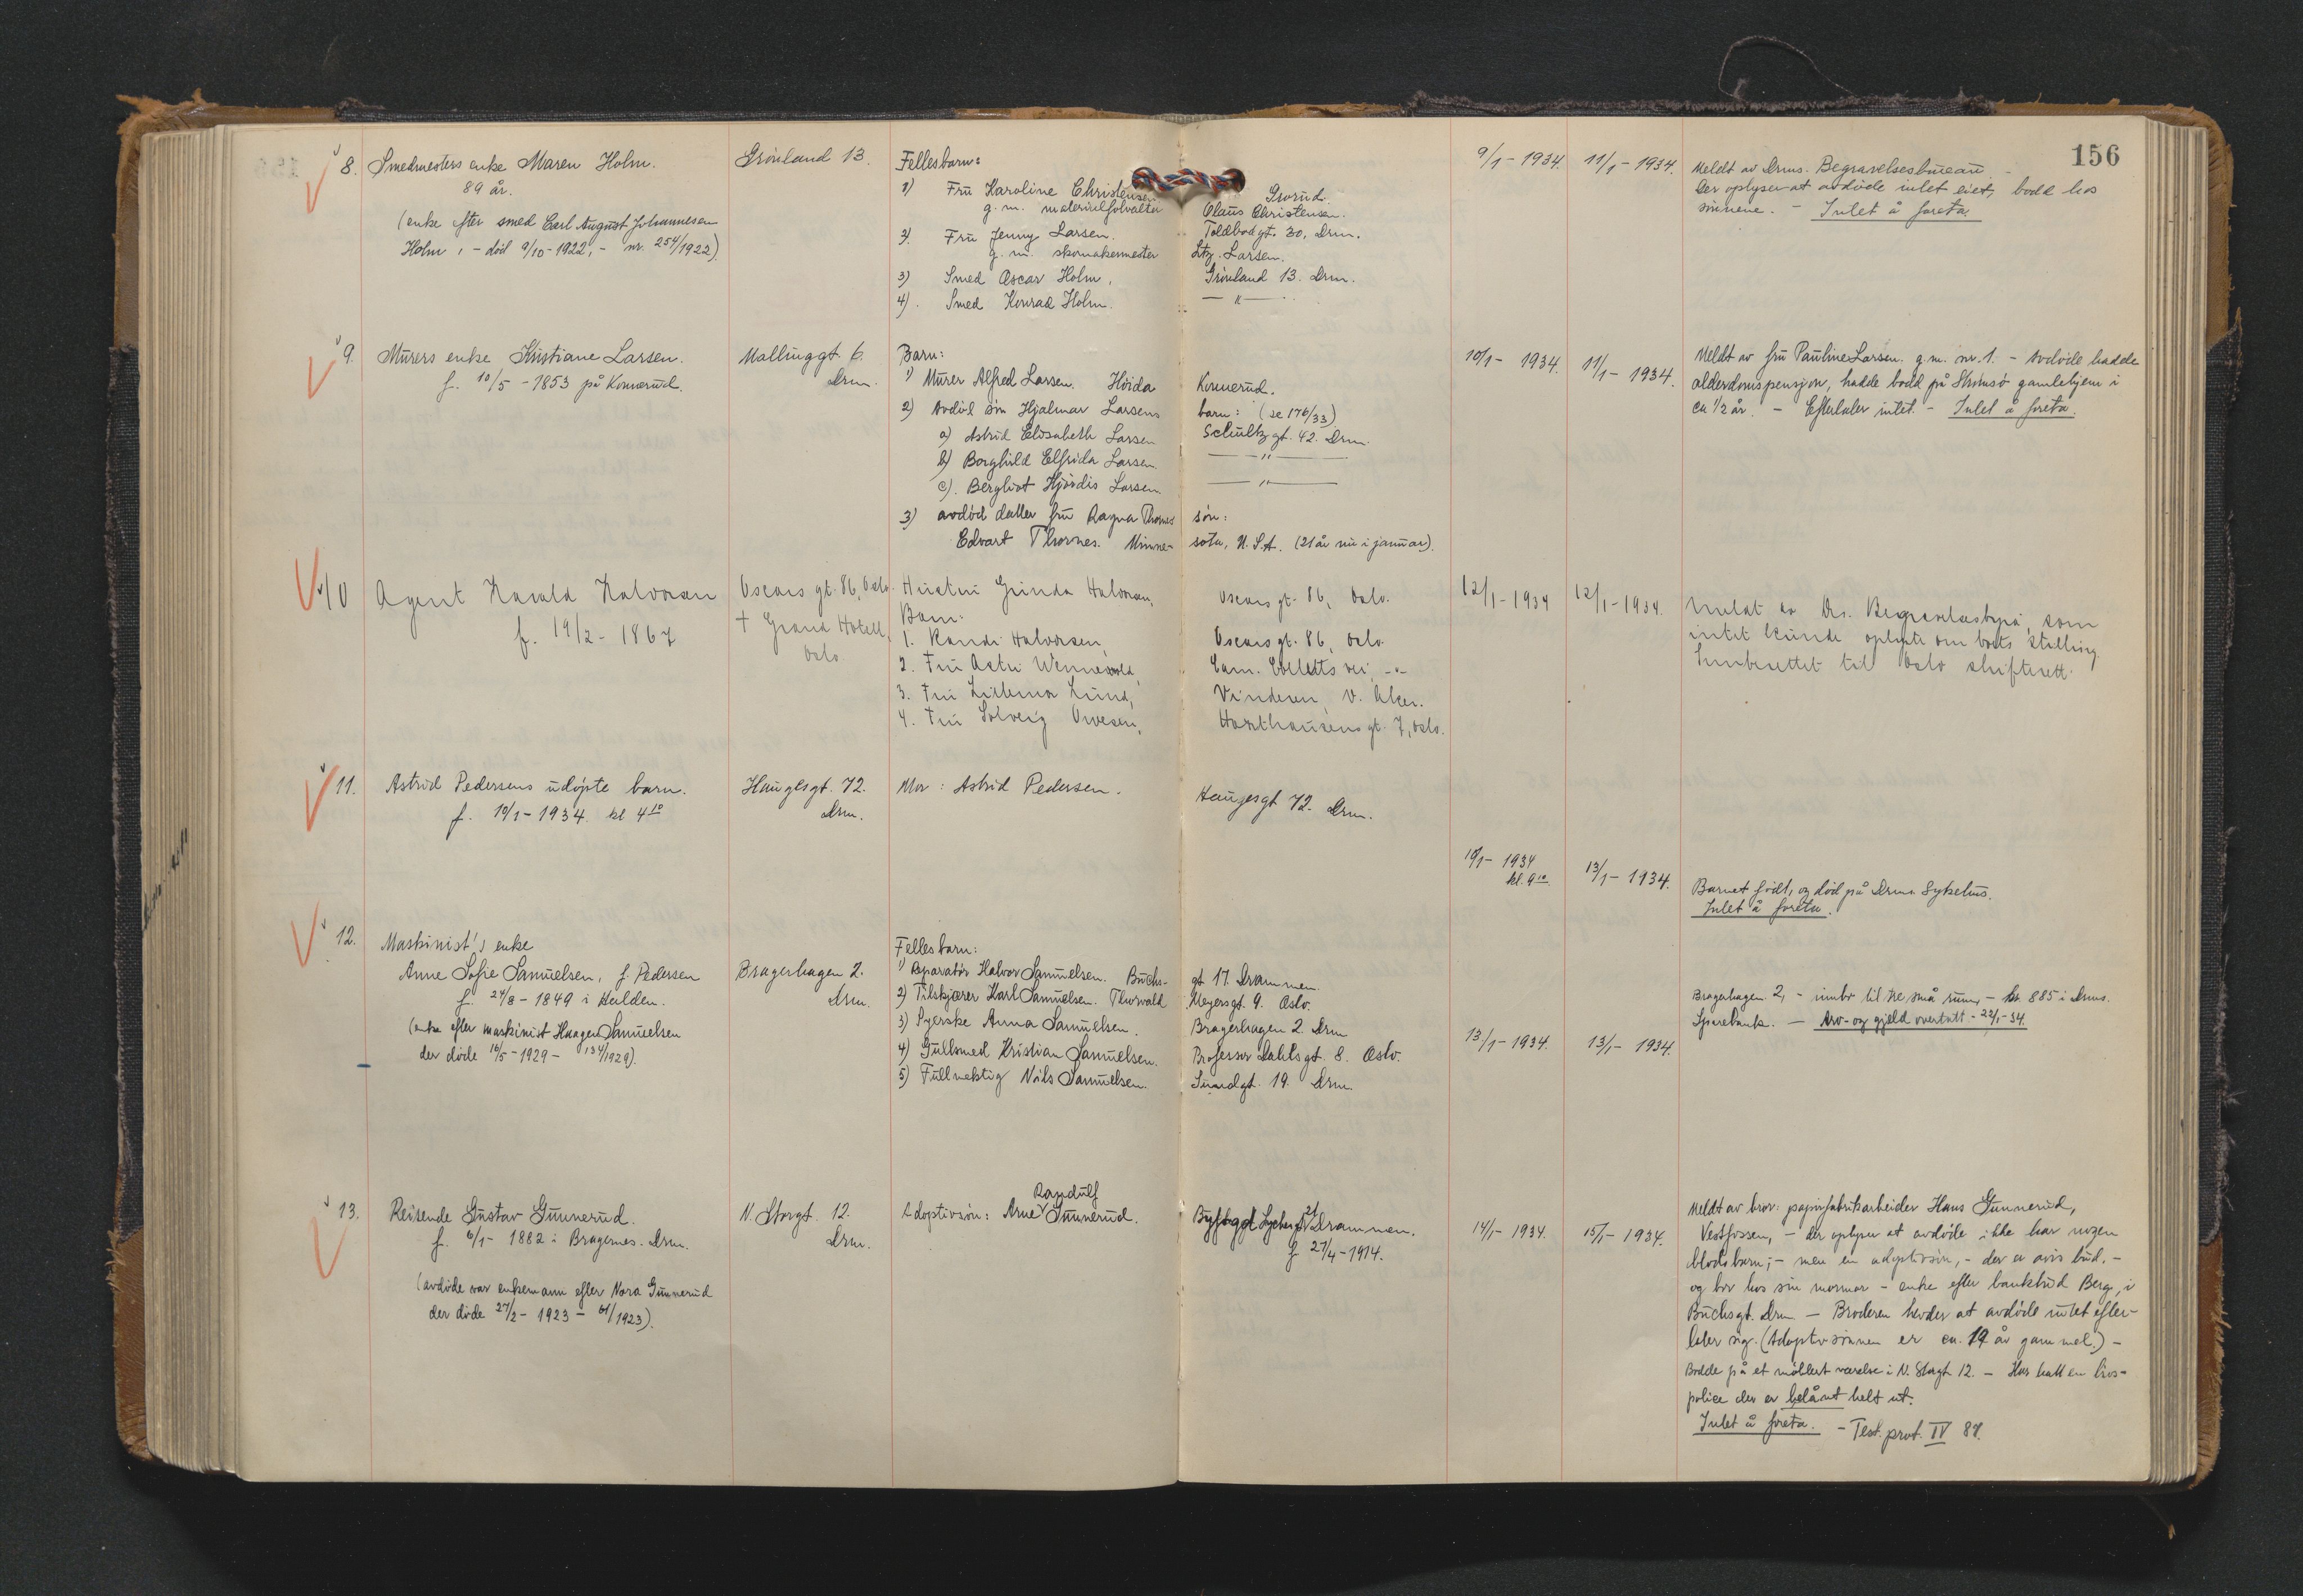 156
8. Smedmesters enke Maren Holm.
89 år.
(enke efter smed Carl August Johannesen
Holm, - död 9/10-1922, - nr. 254/1922).
Grönland 13.
Fellesbarn:
1) Fru Karoline Christensen Grorud.
g.m. materialforvalter Olaus Christensen.
2) Fru Jenny Larsen. Toldbodgt. 30, Drm.
g.m. skomakermester Larsen.
3) Smed Oscar Holm, Grönland 13. Drm.
4). Smed Konrad Holm. — " —
9/1-1934. 11/1-1934.
Meldt av Drms. Begravelsesbureau. -
der oplyser at avdöde intet eiet, bodd hos
sönnene. - Intet å foreta.
9. Murers enke Kristiane Larsen.
f. 10/5-1853 på Konnerud.
Mallinggt. 6.
Drm.
Barn:
1) Murer Alfred Larsen. Höida Konnerud.
2) Avdöd sön Hjalmar Larsens barn: (se 176/33)
a) Astrid Elisabeth Larsen Schultzgt. 42. Drm.
b) Borghild Elfrida Larsen. — " —
c). Bergliot Hjördis Larsen — " —
3) avdöd datter fru Ragna Thornes sön:
Edvart Thornes. Minne- sota, U.S.A. (21 år nu i januar).
10/1-1934. 11/1-1934.
Meldt av fru Pauline Larsen. g.m. nr. 1. - Avdöde hadde
alderdomspensjon, hadde bodd på Strömsö gamlehjem i
ca 1/2 år. - Efterlater intet. - Intet å foreta.
10 Agent Harald Halvorsen
f. 19/2-1867
Oscars gt. 86, Oslo.
† Grand Hotell,
Oslo
Hustru Halvorsen, Oscars gt. 86, Oslo.
Barn:
1. Randi Halvorsen, Oscars gt. 86, Oslo
2. Fru Wennevold, Cam. Colletts vei, -"-
3. Fru Lillemor Lund, Vinderen, V. Aker.
4. Fru Solveig Owesen, Harelthausens gt. 7, Oslo.
12/1-1934 12/1-1934.
Meldt av Drs. Begravelsesbyrå, som
intet kunde oplyse om boets stilling.
Innberettet til Oslo skifterett.
11. Astrid Pedersens udöpte barn.
f. 10/1-1934. kl 4 10
Haugesgt. 72.
Drm.
Mor: Astrid Pedersen. Haugesgt 72. Drm.
10/1-1934
kl. 9 10.
13/1-1934.
Barnet födt, og död på Drm. Sykehus.
Intet å foreta.
12. Maskinist's enke
Anne Sofie Samuelsen, f. Pedersen
f. 24/8-1849 i Halden.
(enke efter maskinist Haagen Samuelsen
der döde 16/5-1929 - 134/1929).
Bragerhagen 2.
Drm.
Fellesbarn:
1) Reparatör Halvor Samuelsen. Buchs- gt 17. Drammen.
2) Tilskjærer Karl Samuelsen. Thorvald Meyersgt. 9. Oslo.
3) Syerske Anna Samuelsen. Bragerhagen 2. Drm
4) Gullsmed Kristian Samuelsen. Professor Dahlsgt. 8. Oslo.
5) Fullmektig Nils Samuelsen. Sundgt. 19. Drm.
13/1-1934. 13/1-1934.
Bragerhagen 2, - innbo til tre små rum, - kr. 885 i Drms.
Sparebank. - Arv- og gjeld overtatt - 22/1-34.
13. Reisende Gustav Gunnerud.
f. 6/1-1882 i Bragernes. Drm.
(avdöde var enkemann efter Nora Gunnerud
der döde 27/2-1923 - 61/1923).
N. Storgt. 12.
Drm.
Adoptivsön: Arne Randulf Gunnerud. Drammen.
f 27/4-1914.
14/1-1934. 15/1-1934.
Meldt av bror: papirfabrikarbeider Hans Gunnerud,
Vestfossen, - der oplyser at avdöde ikke har nogen
blodsbarn; - men en adoptivsön, - der er avis bud. -
og bor hos sin mormor - enke efter bankbud Berg, i
Buchsgt. Drm - Broderen hevder at avdöde intet efter-
later sig. (Adoptivsönnen er ca. 19 år gammel.) -
Bodde på et möblert værelse i N. Storgt 12. - Har hatt en livs-
police der er belånt helt ut.
Intet å foreta. - Test. prot. IV 88.